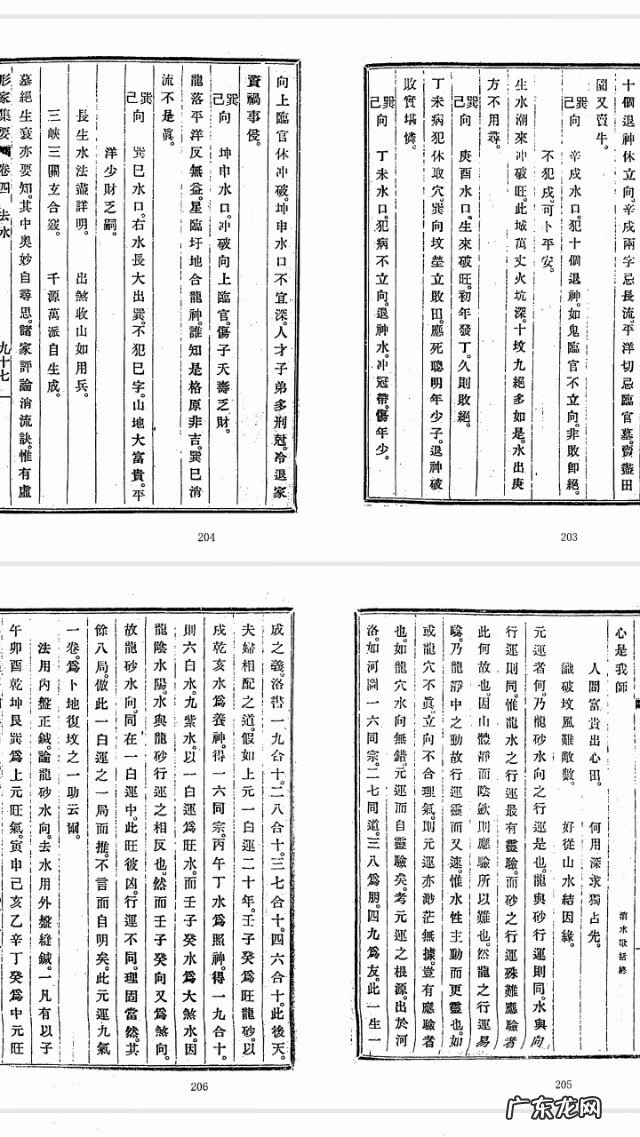 十個退神休立向。辛戌兩字忌長流。平洋切忌臨官墓。賣盡田
園又賣牛。
巽巳向 辛戌水口。犯十個退神。如鬼臨官不立向。非敗卽絕。
不犯戌。可卜平安。
生水潮來冲破旺。此城萬丈火坑深。十坟九絕多如是。水出庚
方不用尋。
巽巳向 庚酉水口。生來破旺。初年發丁。久則敗絕。
丁未病犯休取穴。巽向坟塋立敗田。應死聰明年少子。退神破
敗實堪憐。
巽巳向 丁未水口。犯病不立向。退神水。冲冠帶。傷年少。
203
向上臨官休冲破。坤申水口不宜深。人才子弟多刑尅。冷退家
資禍事侵。
巽巳向 坤申水口。冲破向上臨官。傷子夭壽乏財。
龍落平洋反無益。星臨圩地合龍神。誰知是格原非吉。巽巳消
流不是眞。
巽巳向 巽巳水口。右水長大出巽。不犯巳字。山地大富貴。平
洋少財乏嗣。
長生水法盡詳明。 出煞收山如用兵。
三峽三關玄合竅。 千源萬派自生成。
墓絕生衰亦要知。其中奧妙自尋思。諸家評論消流訣惟有虛
形家集要 卷四 去水 九十七
204
心是我師
人間富貴出心田。 何用深求獨占先。
識破坟風難敵數。 好從山水結因緣。
消水歌括終
元運者何。乃龍砂水向之行運是也。龍與砂行運則同。水與向
行運則同。惟龍水之行運最有靈驗。而砂之行運殊難應驗者
此何故也。因山體靜而陰歛則應驗所以難也。然龍之行運易
驗。乃龍靜中之動故行運靈而又速。惟水性主動而更靈也。如
或龍穴不眞立向不合理氣。則元運亦渺茫無據。豈有應驗者
也。如龍穴水向無錯。元運而自靈驗矣。考元運之根源。出於河
洛。如河圖一六同宗。二七同道。三八爲朋。四九爲友。此一生一
205
成之義。洛書一九合十。二八合十。三七合十。四六合十。此後天。
夫婦相配之道。假如上元一白運二十年。壬子癸爲旺龍砂。以
戌乾亥水爲養神。得一六同宗。丙午丁水爲照神。得一九合十。
則六白水。九紫水。以一白運爲旺水。而壬子癸水爲大煞水。因
龍陰水陽。水與龍砂行運之相反也。然而壬子癸向又爲煞向。
故龍砂水向。同在一白運中。此旺彼凶。行運不同。理固當然。其
餘八局。倣此一白運之一局而推。不言而自明矣。此元運九氣
一卷。爲卜地復坟之一助云爾。
法用內盤正鍼。論龍砂水向。去水用外盤縫鍼。一凡有以子
午卯酉乾坤艮巽爲上元旺氣。寅申巳亥乙辛丁癸爲中元旺
206
广东龙网